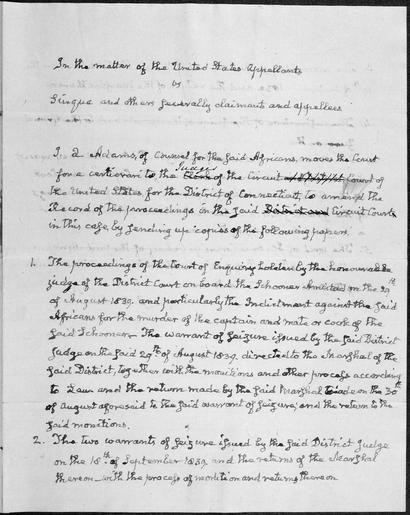 In the matter of the United States Appellants
vs
Cinque and others severally claimants and appellees
J Q Adams, of Counsel for the said Africans, moves the Court
for a certiorari to the Judges of the Circuit Court of
the United States for the District of Connecticut, to amend the
Record of the proceedings in the said District and Circuit Courts
in this case, by sending up copies of the following papers.
1. The proceedings of the Court of Enquiry holden by the honourable
judge of the District Court on board the Schooner Amistad on the 29th
of August 1839. and particularly the Indictment against the said
Africans for the murder of the captain and mate or cook of the
said Schooner— The warrant of seizure issued by the said District
Judge on the said 29th of August 1839. directed to the Marshal of the
said District, together with the monitions and other process according
to Law and the return made by the said Marshal on the 30
of August aforesaid to the said warrant of seizure, and the return to the
said monitions.
2. The two warrants of seizure issued by the said District Judge
on the 18th of September 1839. and the returns of the Marshal
thereon—with the process of monition and returns thereon